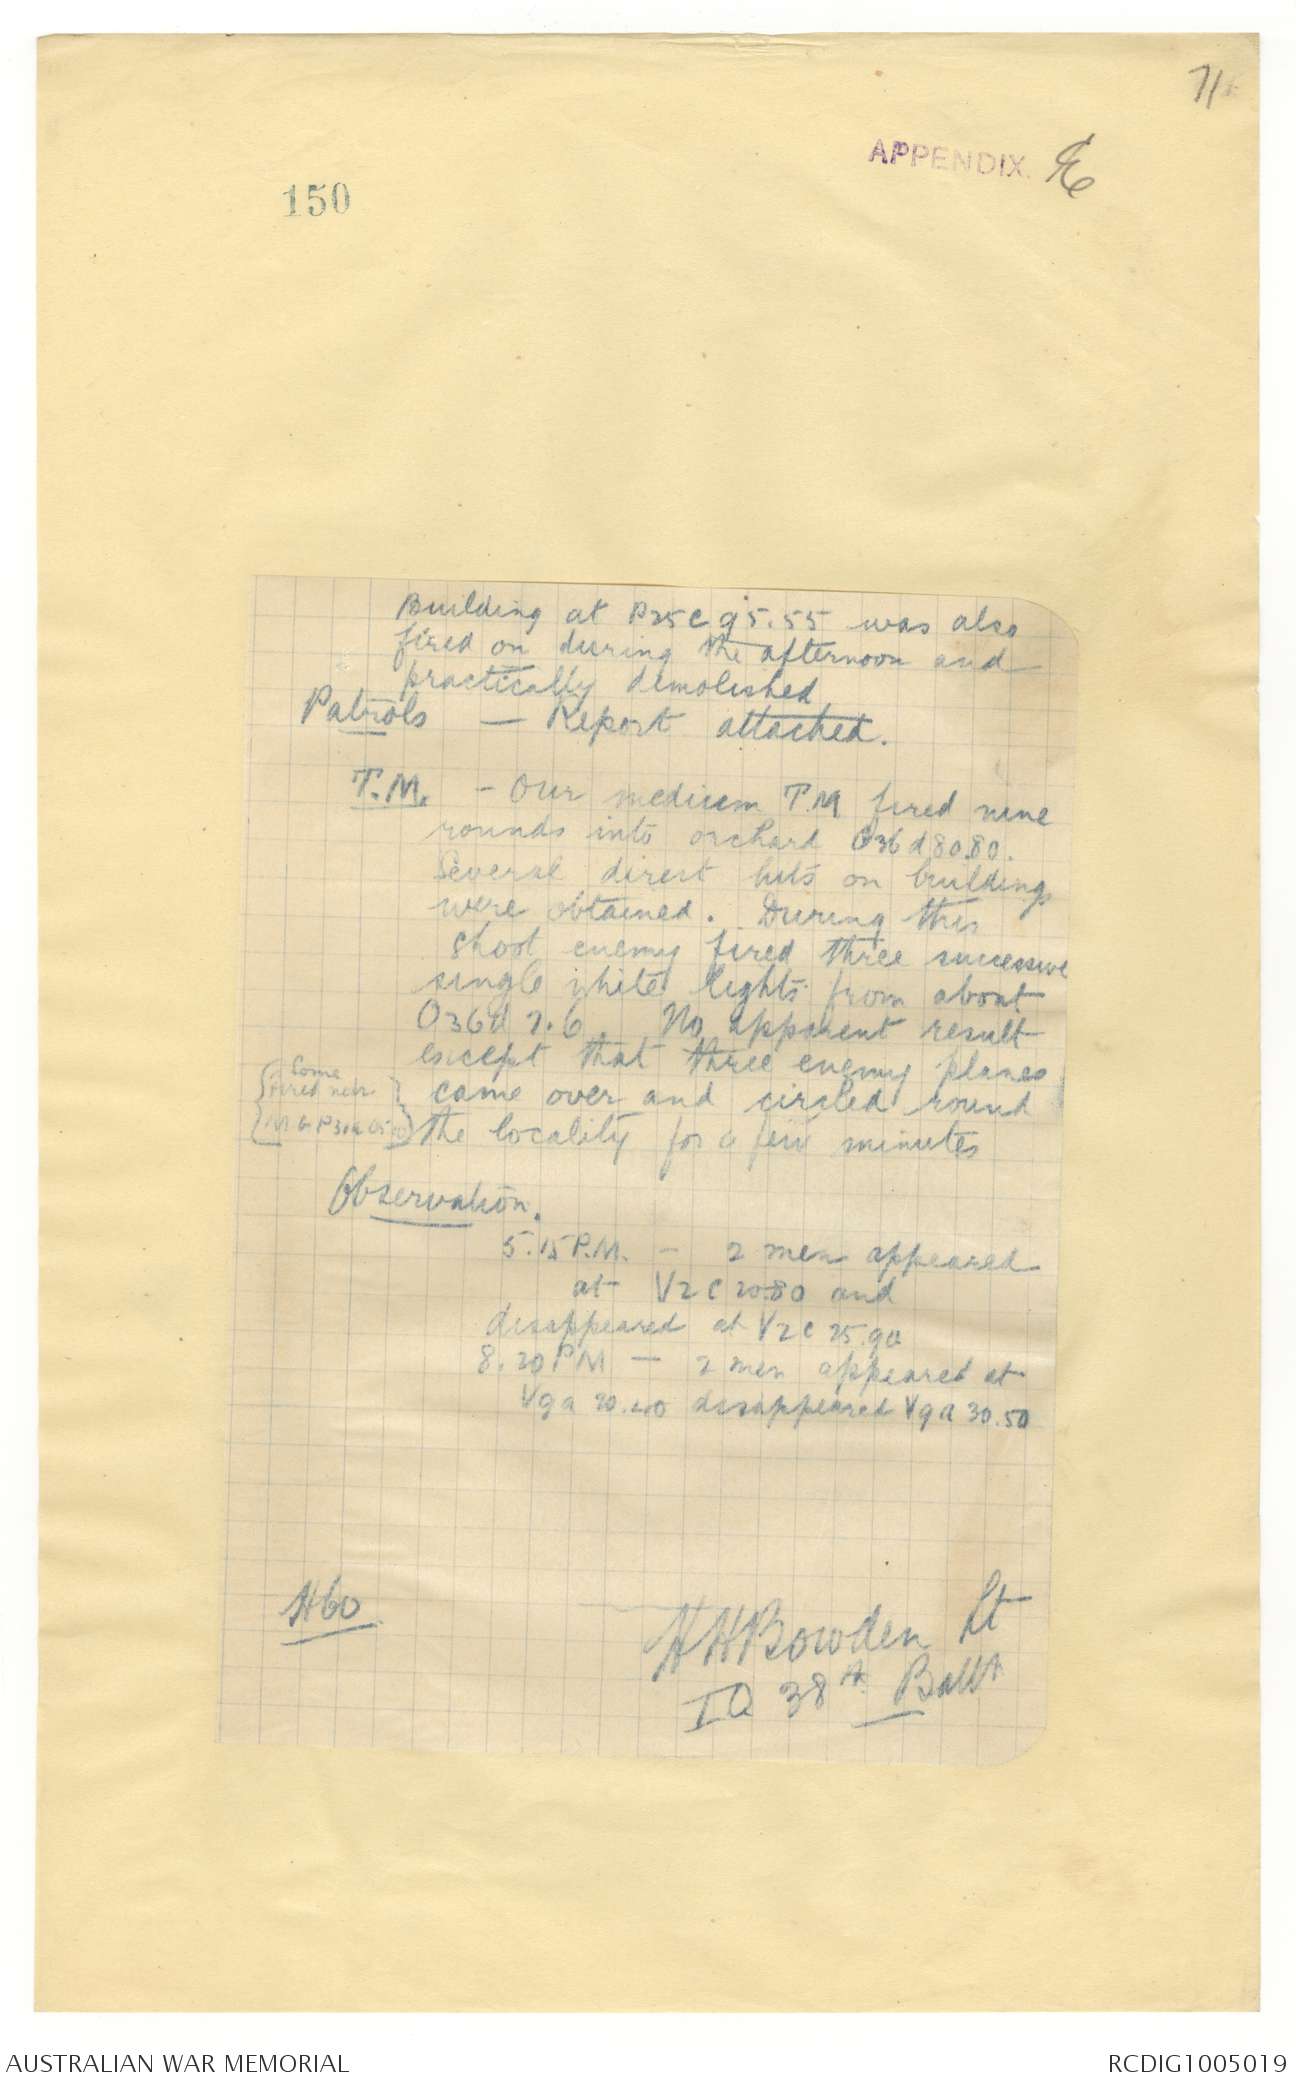 71
APPENDIX. E
150
Building at P25c 95.55 was also
fired on during the afternoon and
practically demolished
Patrols — Report attached.
T.M. - Our medium T.M fired nine
rounds into orchard O36d80.80.
Several direct hits on buildings
were obtained. During this
shoot enemy fired three successive
single white lights from about
O36d 7.6. No apparent result
except that three enemy planes
came over and circled round
the locality for a few minutes
Some
fired near
MG
Observation.
5.15 P.M. - 2 men appeared
at V2c 20.80 and
disappeared at V2c 25.90
8.20 PM — 2 men appeared at
V9a 20.40 disappeared V9a 30.50
H60
HHBowden Lt
IO 38th Battn
AUSTRALIAN WAR MEMORIAL
RCDIG1005019